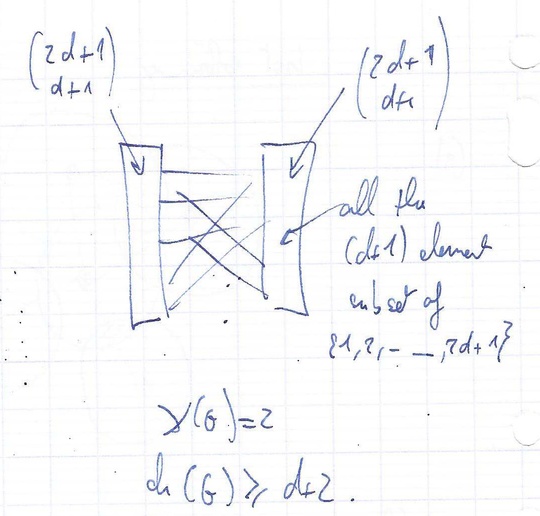 (2d+1
d+1)
(2d+1
d+1)
all the
(d+1) element
subset of
{1,2,- -,2d+1}
χ(G)=2
ch(G)≥ d+2.